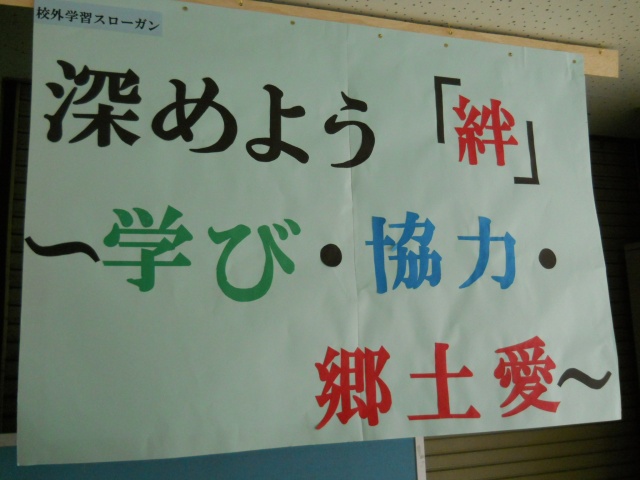 校外学習スローガン
深めよう「絆」
～学び・協力・
郷土愛～